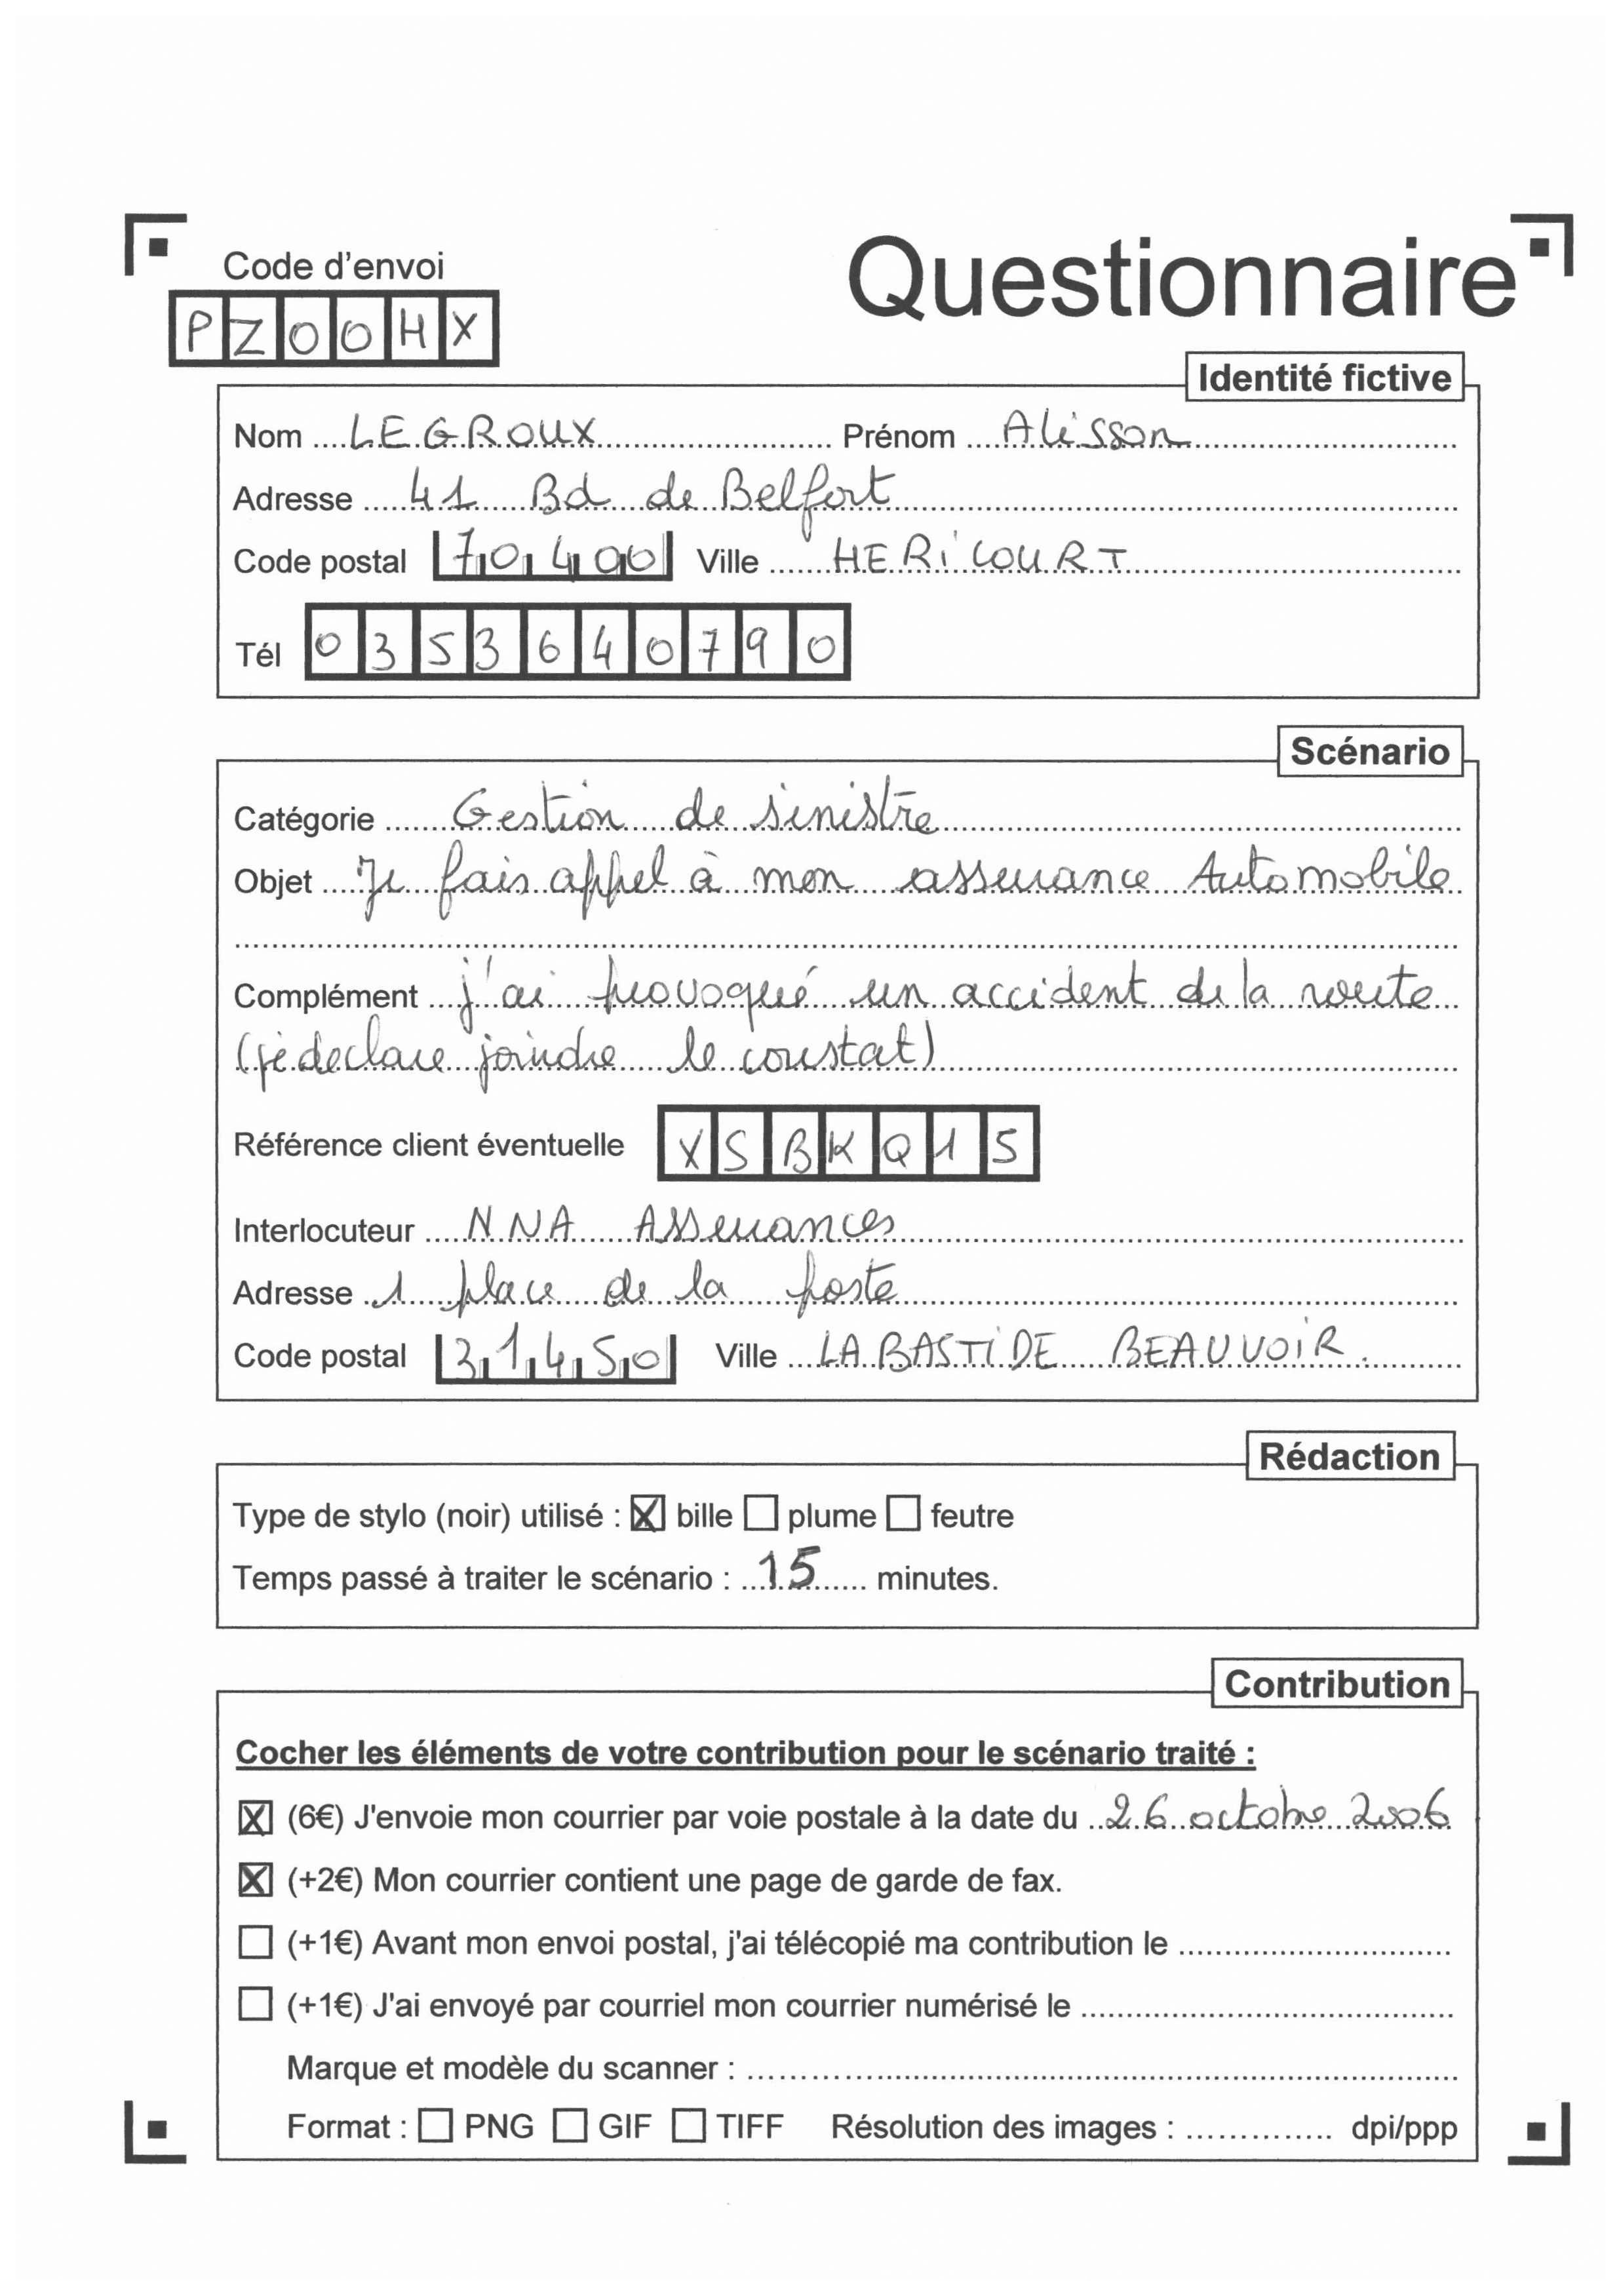 Code d'envoi
Questionnaire
PZ00HX
Identité fictive
Nom LEGROUX Prénom Alisson
Adresse 41 Bd de Belfort
Code postal 70400 Ville HERiCOURT
Tél 0353640790
Scénario
Catégorie Gestion de sinistre
Objet Je fais appel à mon assurance Automobile
Complément j'ai provoqué un accident de la route
(je declare joindre le constat)
Référence client éventuelle XSBKQ15
Interlocuteur NNA Assurances
Adresse 1 place de la poste
Code postal 31450 Ville LA BASTiDE BEAUVOiR.
Rédaction
Type de stylo (noir) utilisé : ☒ bille ☐ plume ☐ feutre
Temps passé à traiter le scénario : 15 minutes.
Contribution
Cocher les éléments de votre contribution pour le scénario traité :
☒ (6€) J'envoie mon courrier par voie postale à la date du 26 octobre 2006
☒ (+2€) Mon courrier contient une page de garde de fax.
☐ (+1€) Avant mon envoi postal, j'ai télécopié ma contribution le
☐ (+1€) J'ai envoyé par courriel mon courrier numérisé le
Marque et modèle du scanner :
Format : ☐ PNG ☐ GIF ☐ TIFF Résolution des images : dpi/ppp